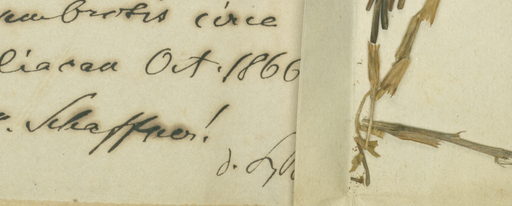 umbrosis circa
liacan Oct. 1866
Schaffner!